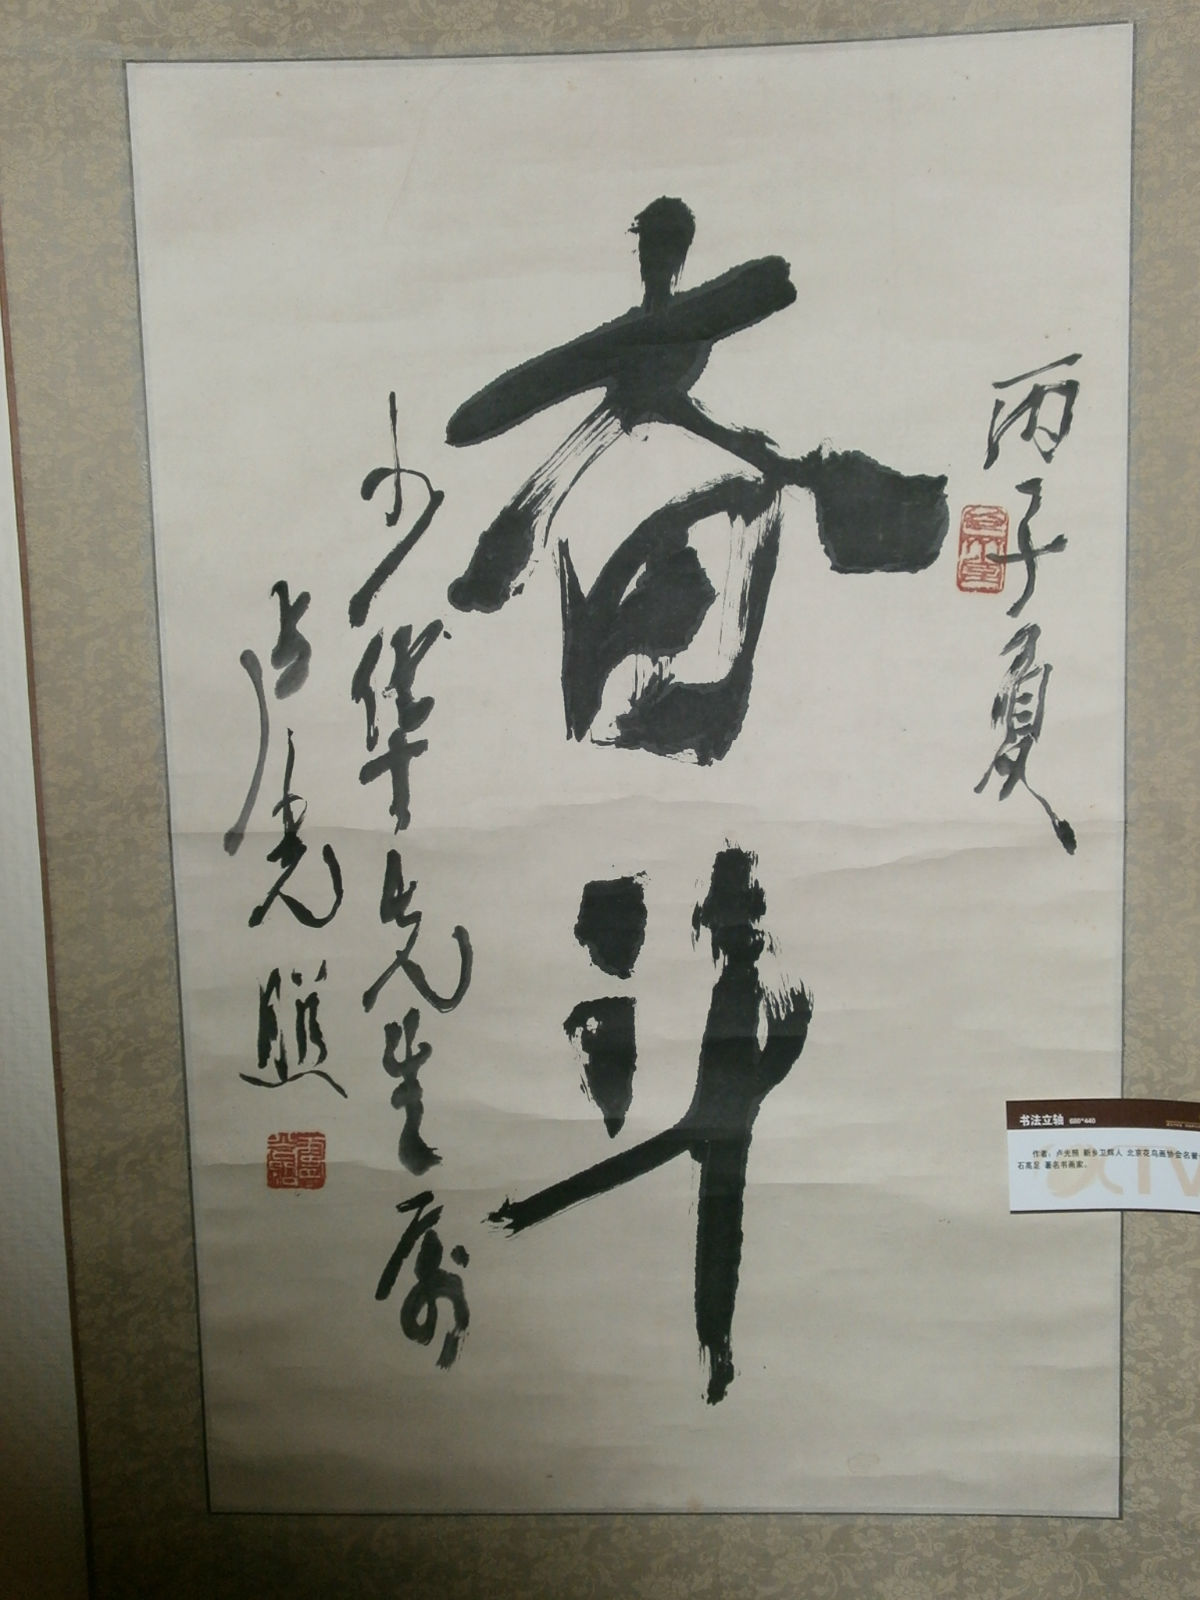 丙子夏
奋斗
少华先生属
卢光照
书法立轴 680*440
作者：卢光照 新乡卫辉人 北京花鸟画协会名誉
石高足 著名书画家。